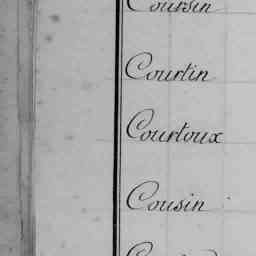 Coursin
Courtin
Courtoux
Cousin